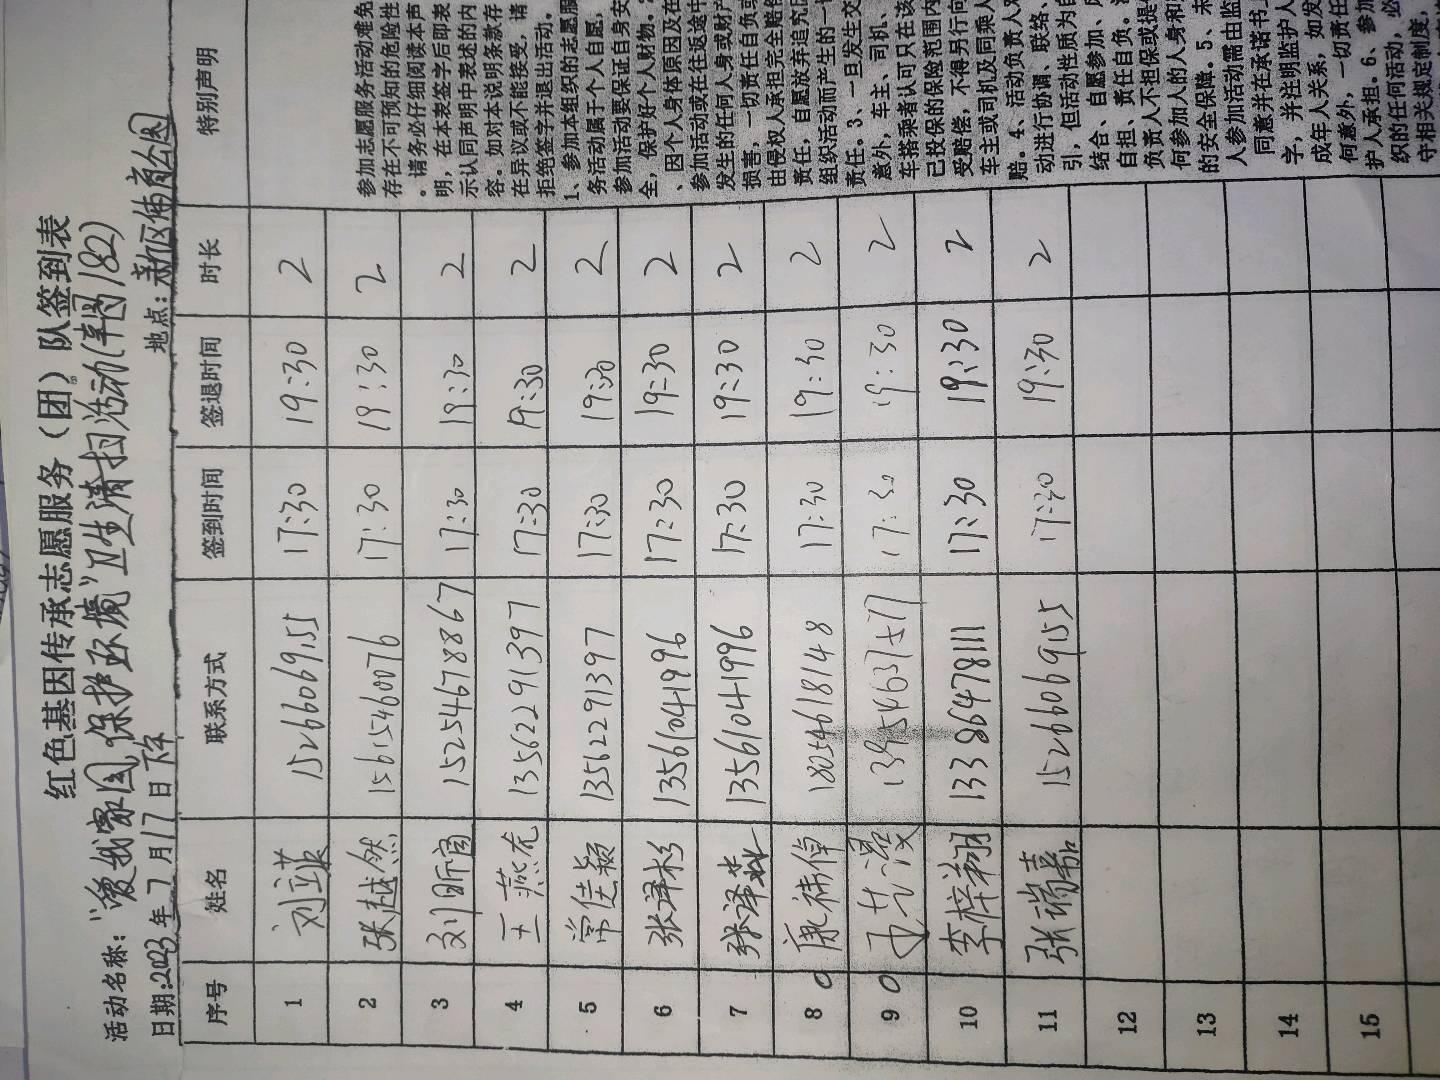 红色基因传承志愿服务（团）队签到表
活动名称："爱我家园，保护环境"卫生清扫活动(丰图182)
日期:2023年7月17日下午 地点:新区体育公园
序号 姓名 联系方式 签到时间 签退时间 时长 特别声明
1 15266069155 17:30 19:30 2
2 张越然 15615460076 17:30 19:30 2
3 刘昕宜 15254678867 17:30 19:30 2
4 王燕龙 13562291397 17:30 19:30 2
5 常佳颖 13562291397 17:30 19:30 2
6 张泽杉 13561041996 17:30 19:30 2
7 张泽 13561041996 17:30 19:30 2
8 康祎倬 18054618148 17:30 19:30 2
9 17:30 19:30 2
10 李梓翔 13386478111 17:30 19:30 2
11 张瑞嘉 15266069155 17:30 19:30 2
12
13
14
15
参加志愿服务活动难免
存在不可预知的危险性
。请务必仔细阅读本声
明，在本表签字后即表
示认同声明中表述的内
容。如对本说明条款存
在异议或不能接受，请
拒绝签字并退出活动。
1、参加本组织的志愿服
务活动属于个人自愿，
参加活动要保证自身安
全，保护好个人财物。
、因个人身体原因及在
参加活动或在往返途中
发生的任何人身或财产
损害，一切责任自负或
由侵权人承担完全赔偿
责任，自愿放弃追究
组织活动而产生的一切
责任。3、一旦发生交
意外，车主、司机、
车搭乘者认可只在该
已投保的保险范围内
受赔偿，不得另行向
车主或司机及同乘人
赔。4、活动负责人对
动进行协调、联络、
引，但活动性质为自
结合、自愿参加、风
自担、责任自负。活
负责人不担保或提供
何参加人的人身和财
的安全保障。5、未
人参加活动需由监护
同意并在承诺书上
字，并注明监护人
成年人关系，如发
何意外，一切责任
护人承担。6、参加
织的任何活动，必
守相关规定制度，